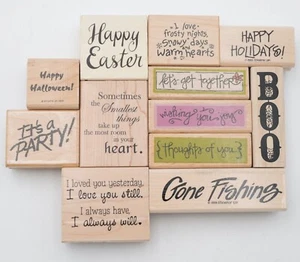 Happy
Easter
I love
frosty nights,
snowy days
and
warm hearts
HAPPY
HOLIDAYS!
Happy
Halloween!
let's get together
BOO
Sometimes
the Smallest
things
take up
the most room
in your
heart.
making you joy
IT'S A
PARTY!
{thoughts of you}
I loved you yesterday,
I love you still.
I always have,
I always will.
Gone Fishing